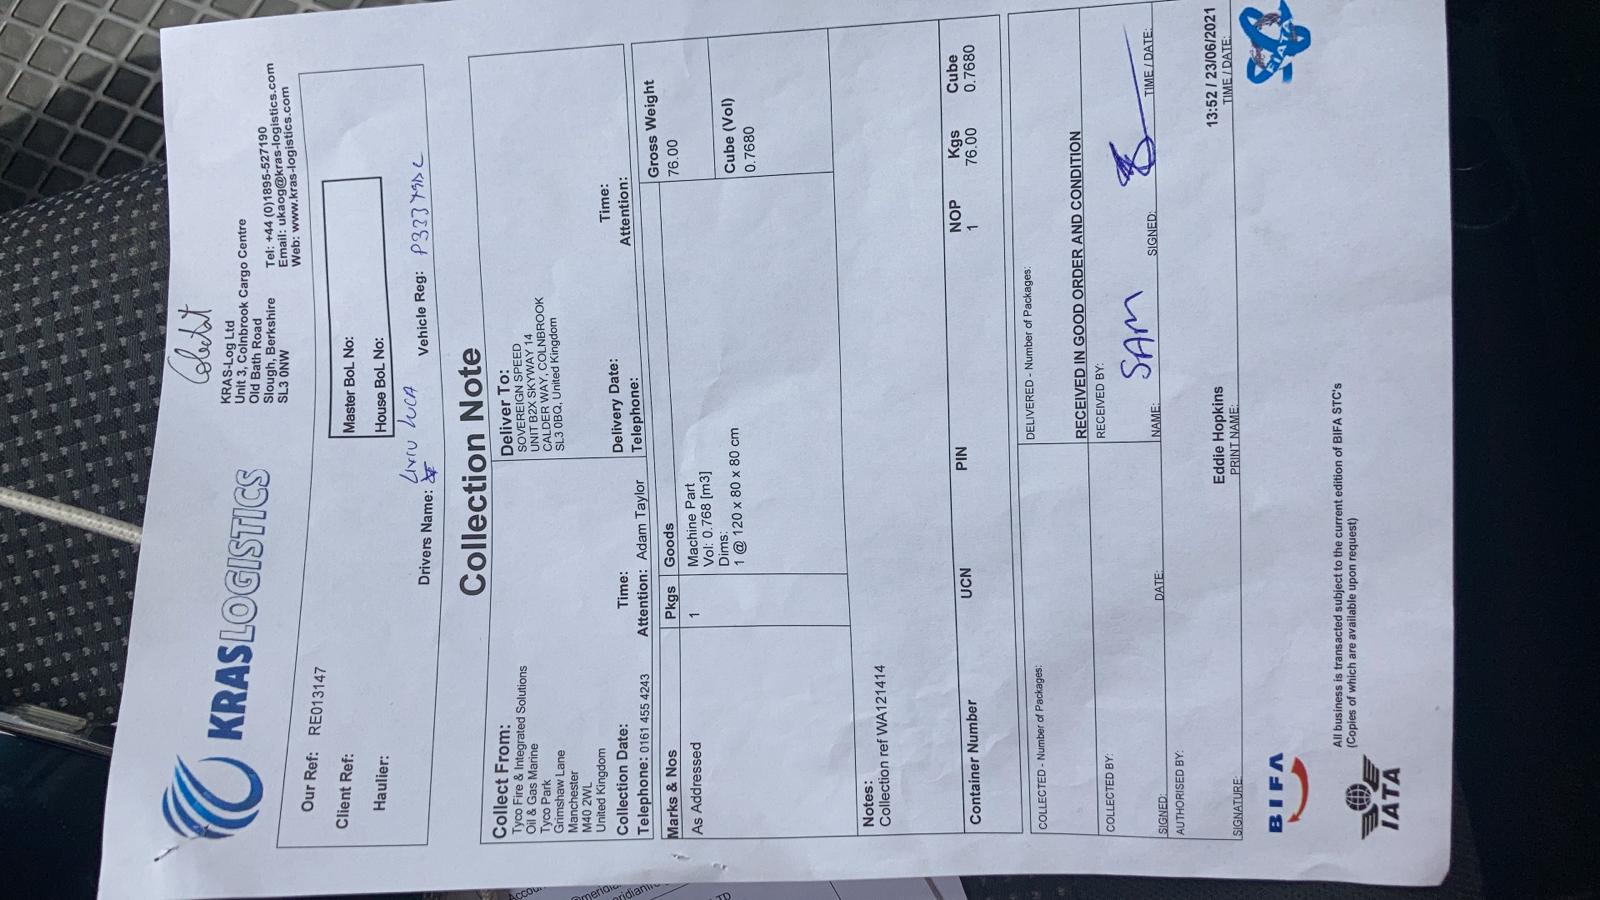 KRASLOGISTICS
KRAS-Log Ltd
Unit 3, Colnbrook Cargo Centre
Old Bath Road
Slough, Berkshire
SL3 0NW
Tel: +44 (0)1895-527190
Email: ukaog@kras-logistics.com
Web: www.kras-logistics.com
Our Ref: RE013147
Client Ref:
Haulier:
Master BoL No:
House BoL No:
Drivers Name: LIVIU LUCA Vehicle Reg:
Collection Note
Collect From:
Tyco Fire & Integrated Solutions
Oil & Gas Marine
Tyco Park
Grimshaw Lane
Manchester
M40 2WL
United Kingdom
Collection Date: Time:
Telephone: 0161 455 4243 Attention: Adam Taylor
Deliver To:
SOVEREIGN SPEED
UNIT B2X SKYWAY 14
CALDER WAY, COLNBROOK
SL3 0BQ, United Kingdom
Delivery Date: Time:
Telephone: Attention:
Marks & Nos Pkgs Goods Gross Weight
As Addressed 1 Machine Part 76.00
Vol: 0.768 [m3]
Dims: Cube (Vol)
1 @ 120 x 80 x 80 cm 0.7680
Notes:
Collection ref WA121414
Container Number UCN PIN NOP Kgs Cube
1 76.00 0.7680
COLLECTED - Number of Packages: DELIVERED - Number of Packages:
RECEIVED IN GOOD ORDER AND CONDITION
COLLECTED BY: RECEIVED BY:
SAM
SIGNED: DATE: NAME: SIGNED: TIME / DATE:
AUTHORISED BY:
Eddie Hopkins 13:52 / 23/06/2021
SIGNATURE: PRINT NAME: TIME / DATE:
BIFA
FIATA
IATA
All business is transacted subject to the current edition of BIFA STC's
(Copies of which are available upon request)